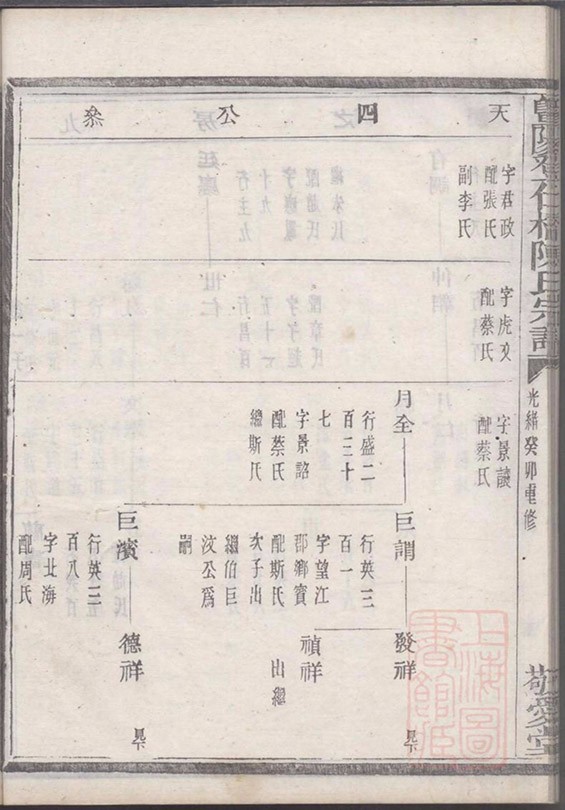 曁陽
陳氏宗譜
光緒癸卯重修
敬愛堂
上海圖
書館藏
天四公叅
字君政
配張氏
副李氏
字虎文
配蔡氏
字景謨
配蔡氏
月全
行盛二
百三十
七
字景詻
配蔡氏
繼斯氏
巨謂
行英三
百一
字望江
郡鄉賓
配斯氏
次子出
繼伯巨
汶公爲
嗣
巨濱
行英三
百八
字北海
配周氏
發祥
見下
禎祥
出繼
德祥
見下